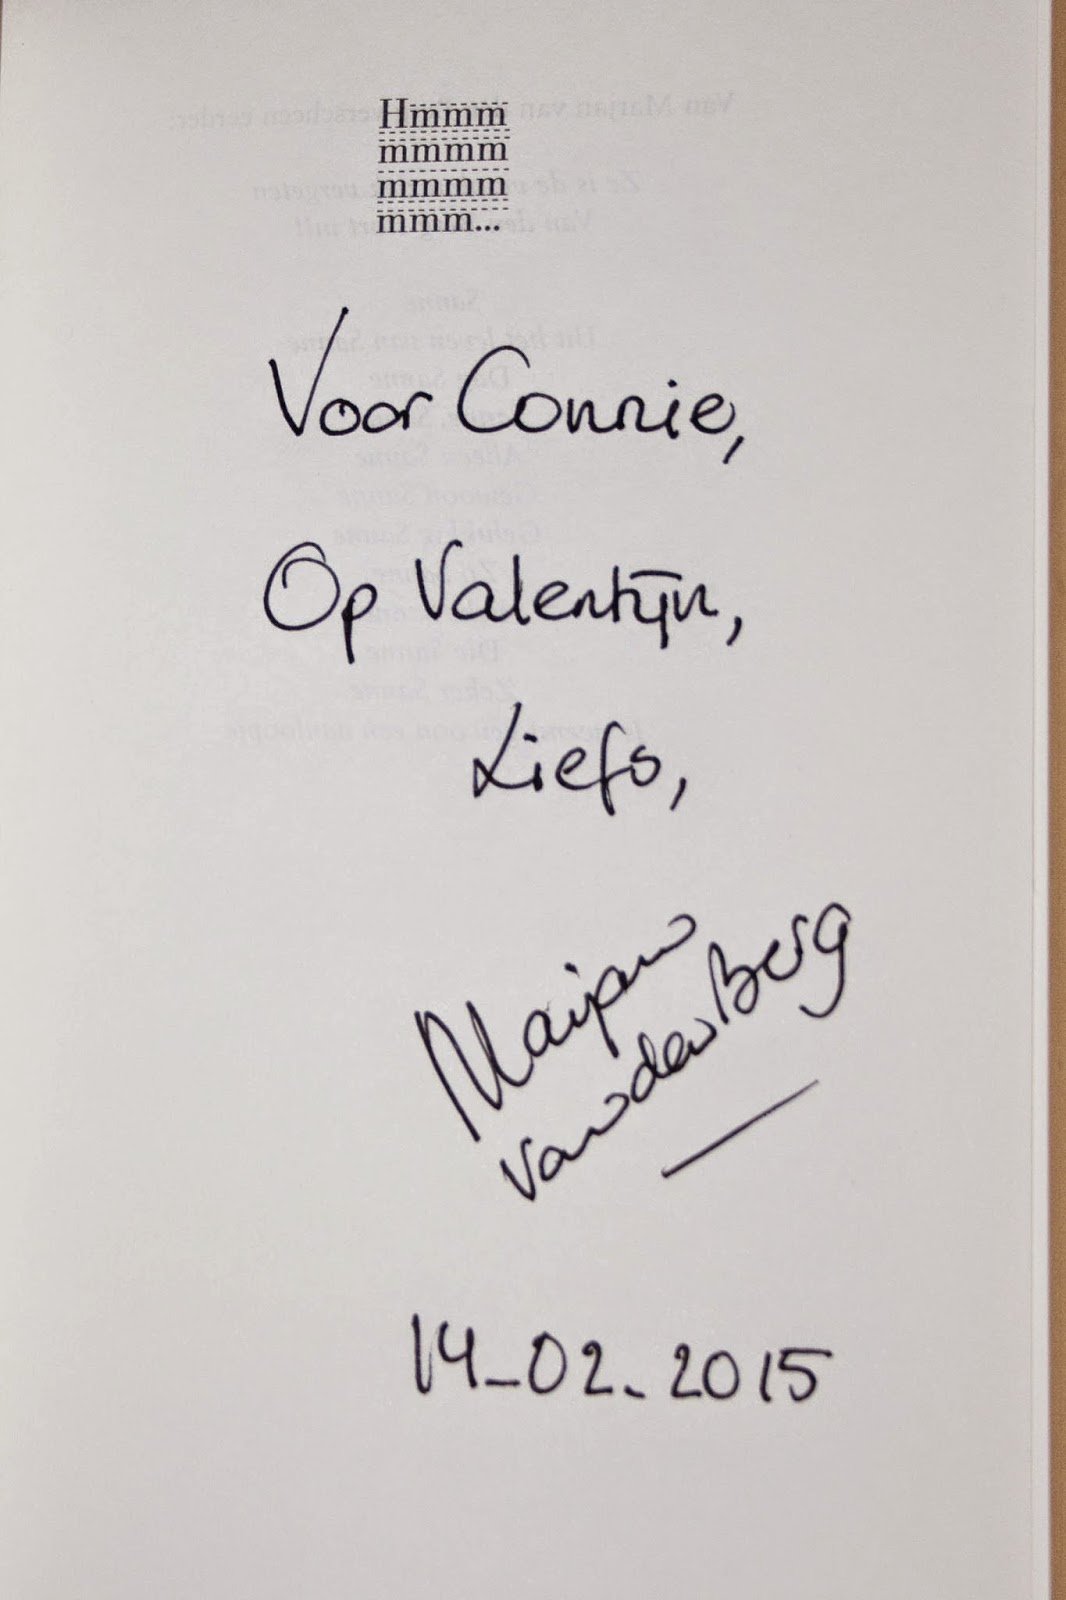 Hmmm
mmmm
mmmm
mmm...
Voor Connie,
Op Valentijn,
Liefs,
Marjan
van den Berg
14-02-2015